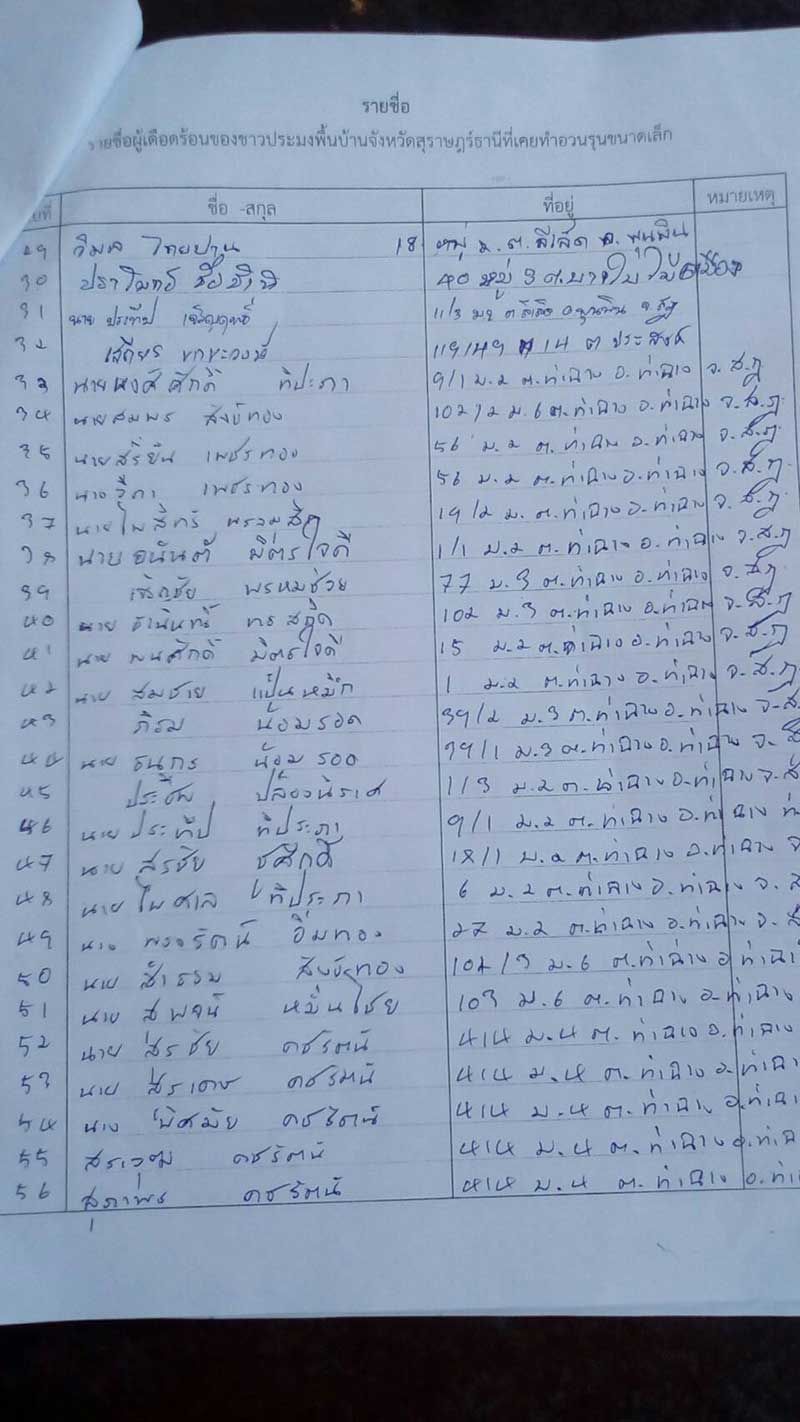 รายชื่อ
รายชื่อผู้เดือดร้อนของชาวประมงพื้นบ้านจังหวัดสุราษฎร์ธานีที่เคยทำอวนรุนขนาดเล็ก
ที่ ชื่อ -สกุล ที่อยู่ หมายเหตุ
29 วิมล ไทยปาน 18 หมู่ ม. ต. ลีเล็ด อ. พุนพิน
30 40 หมู่ 3 ต. บางใบไม้ อ.เมือง
31 นาย ประทีป 11/3 ม.2 ต ลีเล็ด อ.พุนพิน จ.สฎ
32 เสถียร 119/149 ม 14 ต
33 นายนงค์ศักดิ์ ทิประภา 9/1 ม.2 ต.ท่าฉาง อ.ท่าฉาง จ.สฎ
34 นายสมพร สังข์ทอง 102/2 ม.6 ต.ท่าฉาง อ.ท่าฉาง จ.สฎ.
35 เพชรทอง 56 ม.2 ต.ท่าฉาง อ.ท่าฉาง จ.สฎ.
36 เพชรทอง 56 ม.2 ต.ท่าฉาง อ.ท่าฉาง จ.สฎ.
37 นายไพสิทธิ์ 19/2 ม.ต.ท่าฉาง อ.ท่าฉาง จ.สฎ.
38 นายอนันต์ มิตรใจดี 1/1 ม.2 ต.ท่าฉาง อ.ท่าฉาง จ.สฎ
39 เชิดชัย พรหมช่วย 77 ม.3 ต.ท่าฉาง อ.ท่าฉาง จ.สฎ
40 นาย ธานินทร์ 102 ม.3 ต.ท่าฉาง อ.ท่าฉาง จ.สฎ
41 นาย พนศักดิ์ มิตรใจดี 15 ม.2 ต.ท่าฉาง อ.ท่าฉาง จ.สฎ
42 นาย สมชาย แป้นหมึก 1 ม.2 ต.ท่าฉาง อ.ท่าฉาง จ.สฎ.
43 ภิรม น้อมรอด 39/2 ม.3 ต.ท่าฉาง อ.ท่าฉาง จ.ส
44 นาย ธนกร น้อมรอด 39/1 ม.3 ต.ท่าฉาง อ.ท่าฉาง จ.ส
45 ประชีพ ปล้องนิราศ 1/3 ม.2 ต.ท่าฉาง อ.ท่าฉาง จ.ส
46 นาย ประทีป ทิประภา 9/1 ม.2 ต.ท่าฉาง อ.ท่าฉาง
47 นาย สุรชัย ชูศักดิ์ 18/1 ม.2 ต.ท่าฉาง อ.ท่าฉาง จ
48 นาย ไพศาล ทิประภา 6 ม.2 ต.ท่าฉาง อ.ท่าฉาง จ.ส
49 นาง พรรัตน์ อิ่มทอง 27 ม.2 ต.ท่าฉาง อ.ท่าฉาง จ.ส
50 นาย สังข์ทอง 102/3 ม.6 ต.ท่าฉาง อ.ท่าฉา
51 นาย สุพจน์ หมื่นไชย 103 ม.6 ต.ท่าฉาง อ.ท่าฉาง
52 นาย สุรชัย คชรัตน์ 414 ม.4 ต.ท่าฉาง อ.ท่าฉาง
53 นาย สุรเดช คชรัตน์ 414 ม.4 ต.ท่าฉาง อ.ท่าฉา
54 นาง พิศมัย คชรัตน์ 414 ม.4 ต.ท่าฉาง อ.ท่าฉา
55 คชรัตน์ 414 ม.4 ต.ท่าฉาง อ.ท่าฉ
56 สุภาพร คชรัตน์ 414 ม.4 ต.ท่าฉาง อ.ท่า